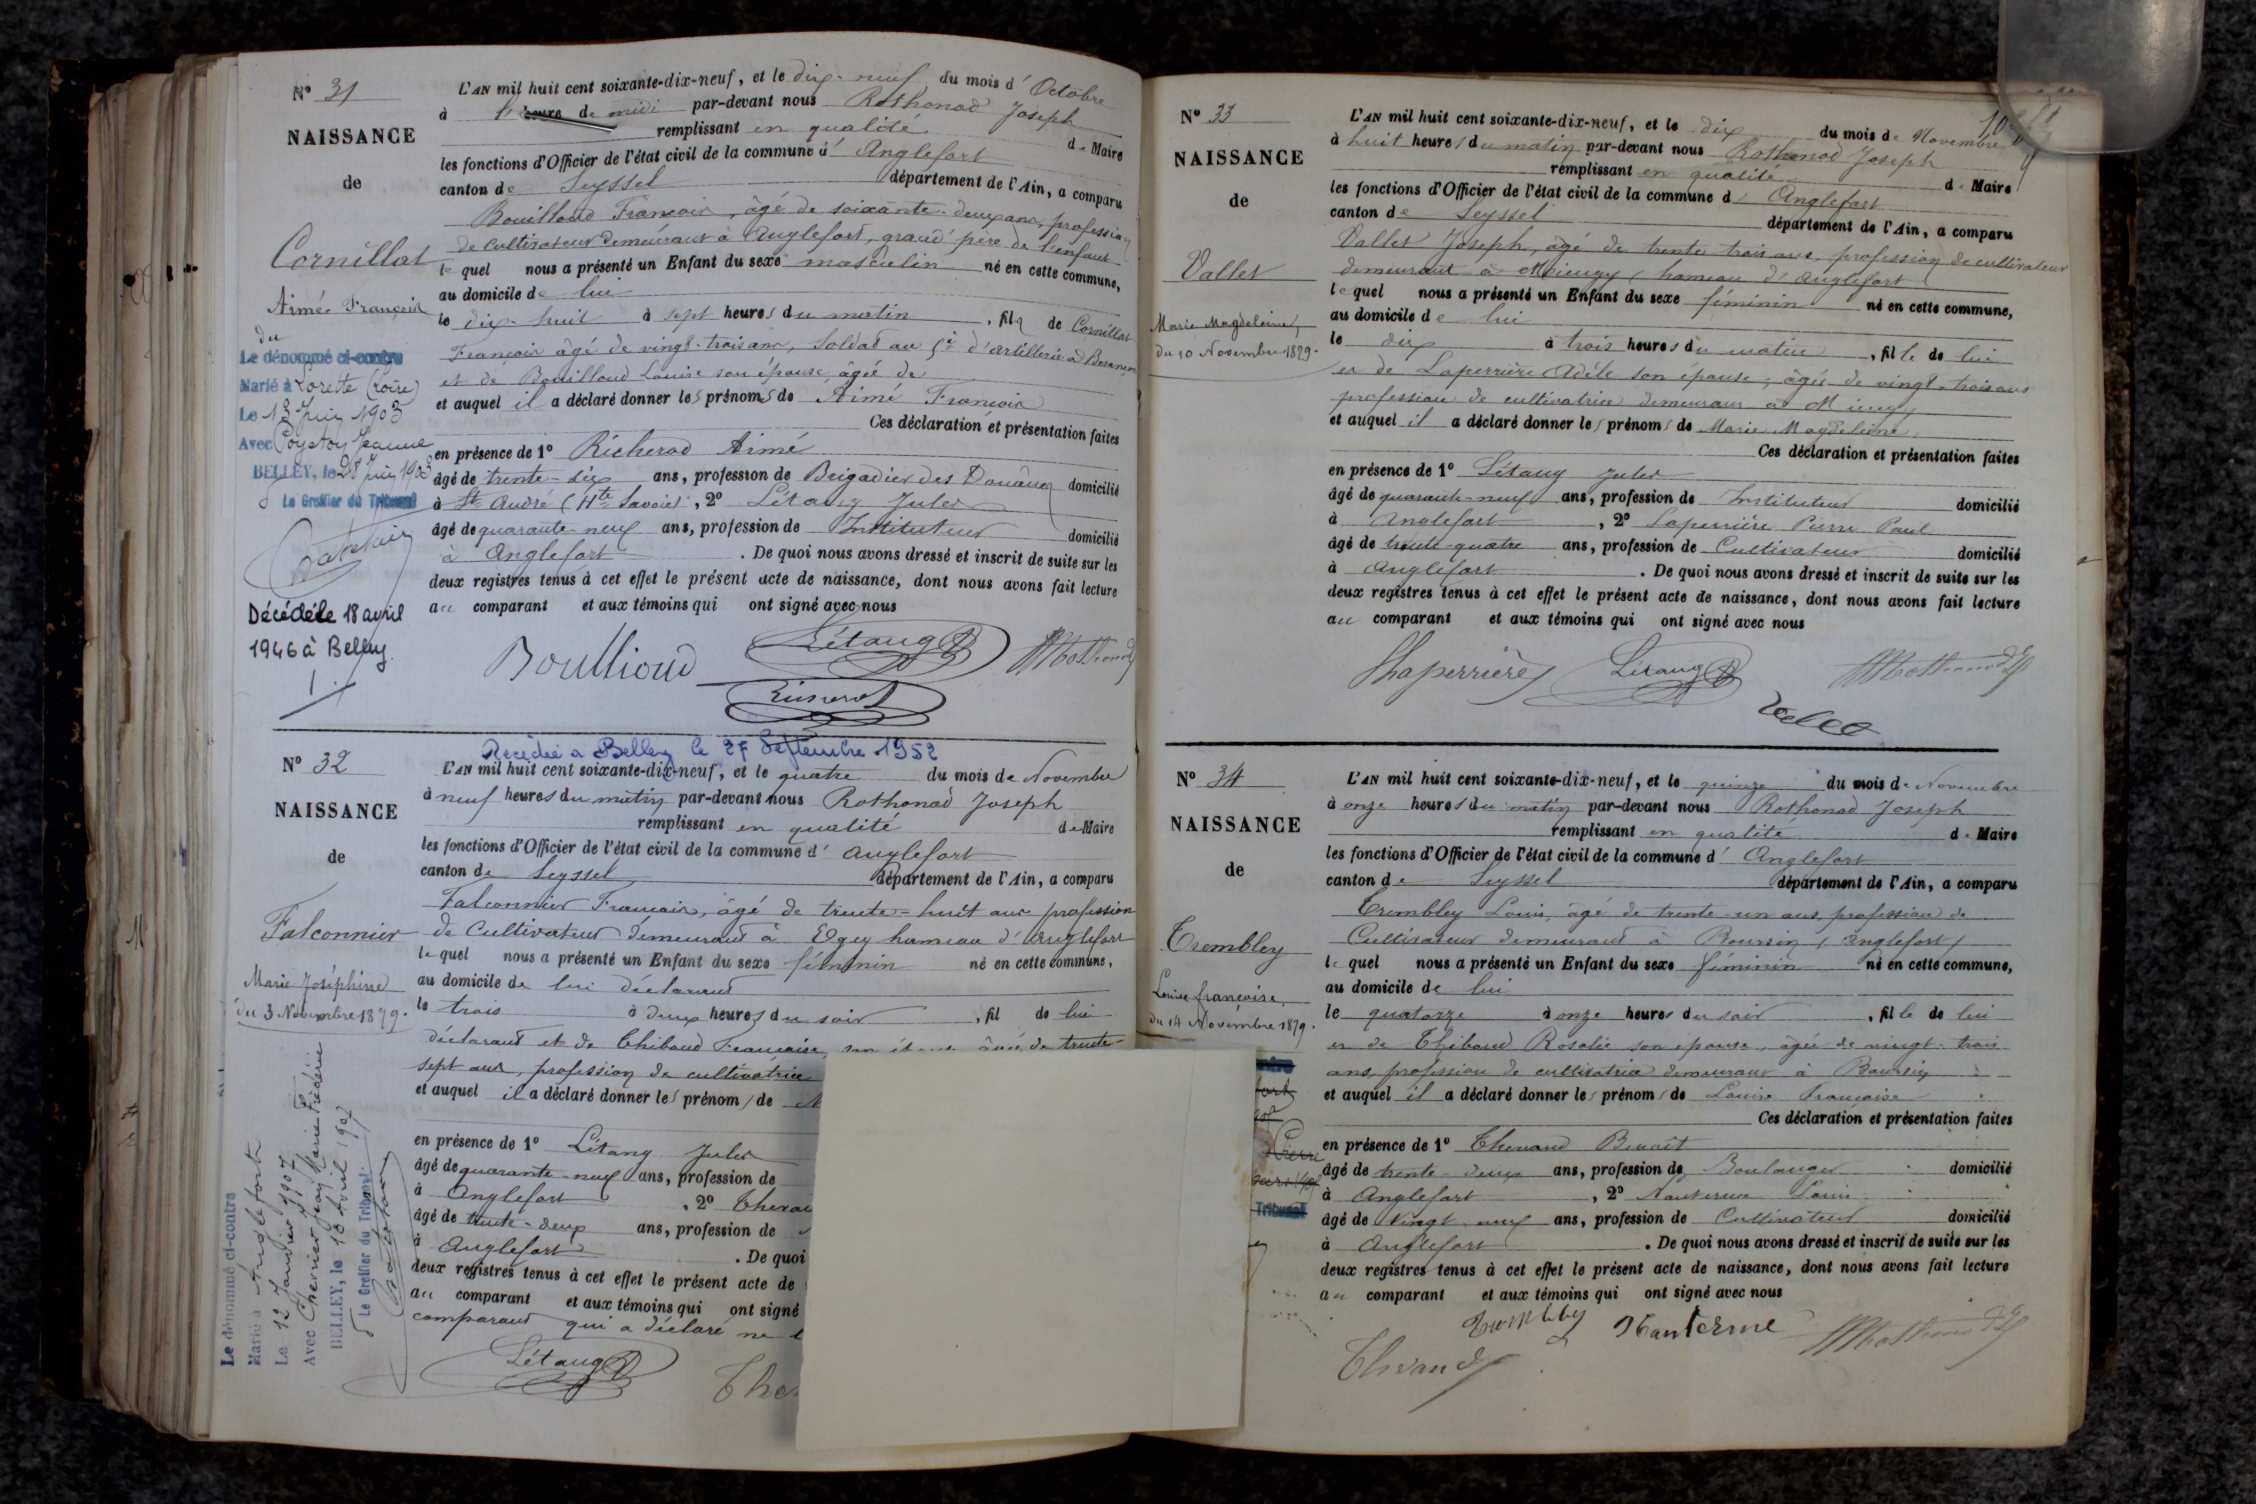 N° 31
NAISSANCE
de
Cornillat
Aimé François
du
Le dénommé ci-contre
Marié à Lorette (Loire)
Le 13 Juin 1903
Avec Jeanne
BELLEY, le 28 Juin 1903
Le Greffier du Tribunal
Décédé le 18 avril
1946 à Belley
L'AN mil huit cent soixante-dix-neuf, et le dix-neuf du mois d'Octobre
à heure de midi par-devant nous Rothonod Joseph
remplissant en qualité de Maire
les fonctions d'Officier de l'état civil de la commune d' Anglefort
canton de Seyssel département de l'Ain, a comparu
Bouilloud François, âgé de soixante-deux ans, profession
de cultivateur demeurant à Anglefort, grand père de l'enfant
lequel nous a présenté un Enfant du sexe masculin né en cette commune,
au domicile de lui
le dix-huit à sept heures du matin, fils de Cornillat
François âgé de vingt-trois ans, Soldat au 5e d'artillerie à Besançon
et de Bouilloud Louise son épouse âgée de
et auquel il a déclaré donner les prénoms de Aimé François
Ces déclaration et présentation faites
en présence de 1° Richerod Aimé
âgé de trente-six ans, profession de Brigadier des Douanes domicilié
à St André (Hte Savoie), 2° Létang Jules
âgé de quarante-neuf ans, profession de Instituteur domicilié
à Anglefort. De quoi nous avons dressé et inscrit de suite sur les
deux registres tenus à cet effet le présent acte de naissance, dont nous avons fait lecture
au comparant et aux témoins qui ont signé avec nous
Boullioud Létang Rothonod
Décédée à Belley le 27 Septembre 1952
N° 32
NAISSANCE
de
Falconnier
Marie Joséphine
du 3 Novembre 1879.
Le dénommé ci-contre
Marié à Anglefort
Le 12 Janvier 1907
Avec Chervier Jay Marie Frédéric
BELLEY, le 18 Avril 1907
Le Greffier du Tribunal
L'AN mil huit cent soixante-dix-neuf, et le quatre du mois de November
à neuf heures du matin par-devant nous Rothonod Joseph
remplissant en qualité de Maire
les fonctions d'Officier de l'état civil de la commune d' Anglefort
canton de Seyssel département de l'Ain, a comparu
Falconnier François, âgé de trente-huit ans profession
de Cultivateur demeurant à hameau d'Anglefort
lequel nous a présenté un Enfant du sexe féminin né en cette commune,
au domicile de lui déclarant
le trois à deux heures du soir, fil de lui
déclarant et de Thibaud Françoise son épouse âgée de trente-
sept ans, profession de cultivatrice
et auquel il a déclaré donner les prénom de
en présence de 1° Létang Jules
âgé de quarante-neuf ans, profession de
à Anglefort, 2°
âgé de trente-deux ans, profession de
à Anglefort. De quoi
deux registres tenus à cet effet le présent acte de
au comparant et aux témoins qui ont signé
comparant qui a déclaré ne
Létang
N° 33
NAISSANCE
de
Vallet
Marie Magdeleine,
du 10 Novembre 1879.
L'AN mil huit cent soixante-dix-neuf, et le dix du mois de Novembre
à huit heures du matin par-devant nous Rothonod Joseph
remplissant en qualité de Maire
les fonctions d'Officier de l'état civil de la commune d' Anglefort
canton de Seyssel département de l'Ain, a comparu
Vallet Joseph, âgé de trente trois ans, profession de cultivateur
demeurant à hameau d'Anglefort
lequel nous a présenté un Enfant du sexe féminin né en cette commune,
au domicile de lui
le dix à trois heures du matin, fille de lui
et de Laperrière Adèle son épouse, âgée de vingt-trois ans
profession de cultivatrice demeurant à
et auquel il a déclaré donner les prénoms de Marie Magdeleine
Ces déclaration et présentation faites
en présence de 1° Létang Jules
âgé de quarante-neuf ans, profession de Instituteur domicilié
à Anglefort, 2° Laperrière Pierre Paul
âgé de trente-quatre ans, profession de Cultivateur domicilié
à Anglefort. De quoi nous avons dressé et inscrit de suite sur les
deux registres tenus à cet effet le présent acte de naissance, dont nous avons fait lecture
au comparant et aux témoins qui ont signé avec nous
Laperrière Létang Rothonod
N° 34
NAISSANCE
de
Trembley
Louise françoise
du 14 Novembre 1879.
Tribunal
L'AN mil huit cent soixante-dix-neuf, et le quinze du mois de Novembre
à onze heures du matin par-devant nous Rothonod Joseph
remplissant en qualité de Maire
les fonctions d'Officier de l'état civil de la commune d' Anglefort
canton de Seyssel département de l'Ain, a comparu
Trembley Louis, âgé de trente-un ans, profession de
Cultivateur demeurant à Boursin (Anglefort)
lequel nous a présenté un Enfant du sexe féminin né en cette commune,
au domicile de lui
le quatorze à onze heures du soir, fille de lui
et de Thibaud Rosalie son épouse, âgée de vingt-trois
ans, profession de cultivatrice demeurant à Boursin
et auquel il a déclaré donner les prénom de Louise Françoise
Ces déclaration et présentation faites
en présence de 1° Thenand Benoît
âgé de trente-deux ans, profession de Boulanger domicilié
à Anglefort, 2° Nanterme Louis
âgé de vingt neuf ans, profession de Cultivateur domicilié
à Anglefort. De quoi nous avons dressé et inscrit de suite sur les
deux registres tenus à cet effet le présent acte de naissance, dont nous avons fait lecture
au comparant et aux témoins qui ont signé avec nous
Trembley Nanterme Rothonod